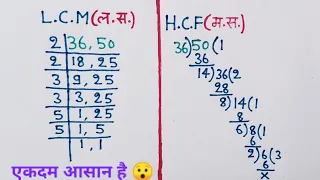 L.C.M(ल.स.)
2 | 36, 50
2 | 18, 25
3 | 9, 25
3 | 3, 25
5 | 1, 25
5 | 1, 5
1, 1
H.C.F(म.स.)
36)50(1
36
14)36(2
28
8)14(1
8
6)8(1
6
2)6(3
6
x
एकदम आसान है 😮